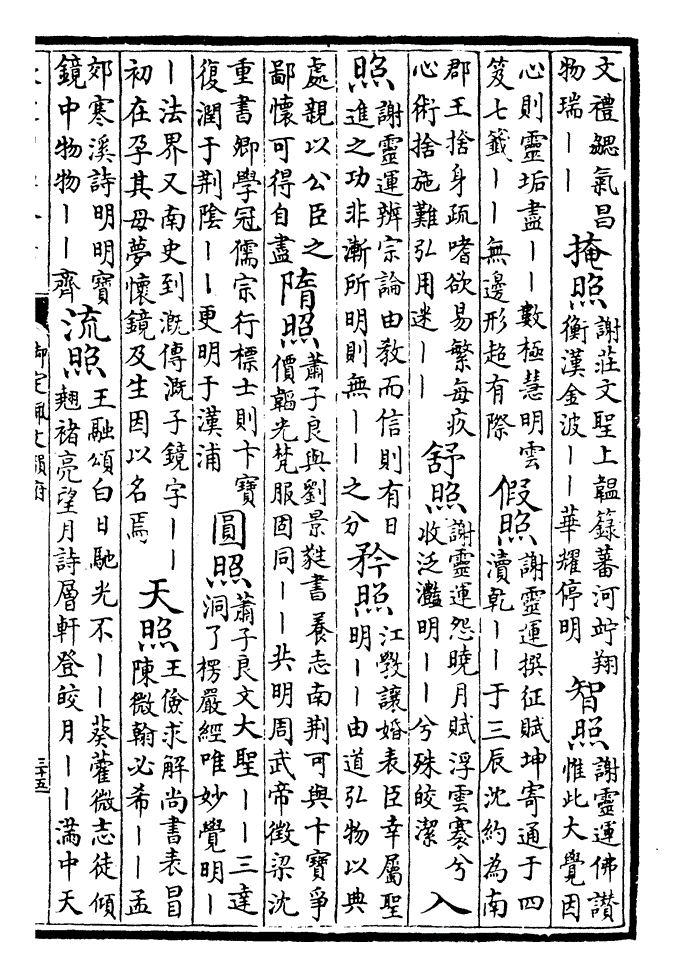 文禮勰氣昌
物瑞——
掩照
謝莊文聖上韞籙蕃河竚翔
衡漢金波——華耀停明
智照
謝靈運佛讃
惟此大覺因
心則靈垢盡——數極慧明雲
笈七籤——無邊形超有際
假照
謝靈運撰征賦坤寄通于四
瀆乾——于三辰沈約為南
郡王捨身疏嗜欲易繁每疚
心術捨施難弘用迷——
舒照
謝靈運怨曉月賦浮雲褰兮
收泛灩明——兮殊皎潔
入
照
謝靈運辨宗論由教而信則有日
進之功非漸所明則無——之分
矜照
江斆讓婚表臣幸屬聖
明——由道弘物以典
處親以公臣之
鄙懷可得自盡
隋照
蕭子良與劉景蕤書養志南荆可與卞寶爭
價韜光梵服固同——共明周武帝徵梁沈
重書卿學冠儒宗行標士則卞寶
復潤于荆陰——更明于漢浦
圓照
蕭子良文大聖——三達
洞了楞嚴經唯妙覺明—
—法界又南史到溉傳溉子鏡字——
初在孕其母夢懷鏡及生因以名焉
天照
王儉求解尚書表冒
陳微翰必希——孟
郊寒溪詩明明寶
鏡中物物——齊
流照
王融頌白日馳光不——葵藿微志徒傾
翹褚亮望月詩層軒登皎月——滿中天
御定佩文韻府
三十五